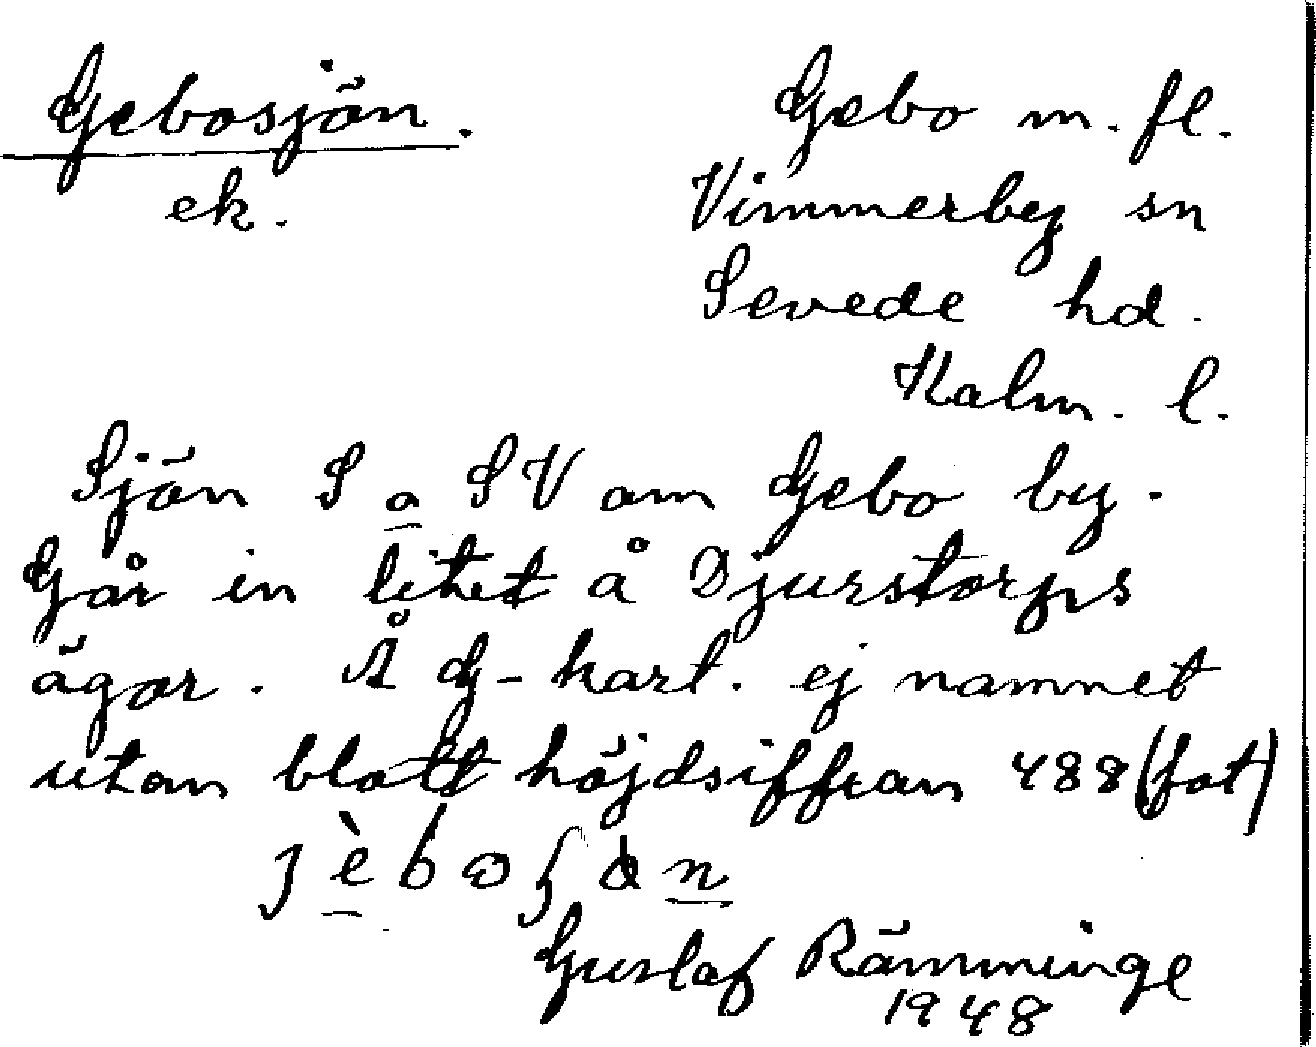 Gebosjön. Gebo m. fl.
ek. Vimmerby sn
Sevede hd.
Kalm. l.
Sjön S o SV om Gebo by.
Går in litet å Djurstorps
ägor. Å G-kart. ej namnet
utan blott höjdsiffran 488 (fot)
Gustaf Rämminge
1948